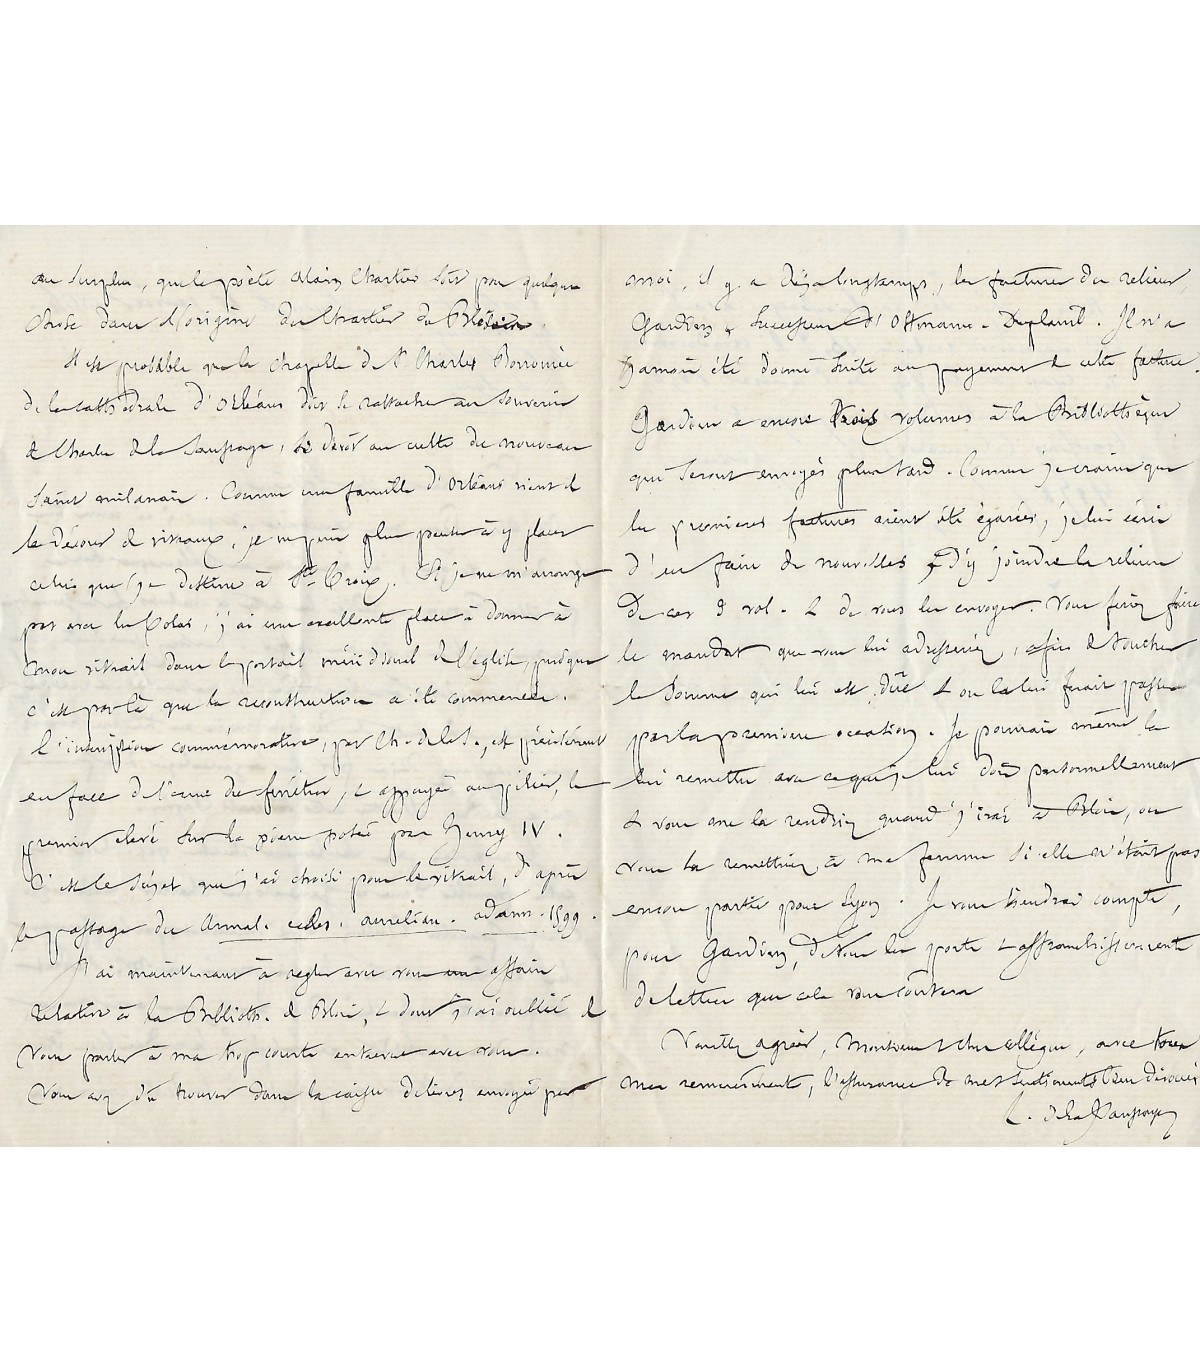 au surplus, que le poète Alain Chartier soit pour quelque
chose dans l'origine du Chartier du Blésois.
Il est probable que la chapelle de St Charles Borromée
de la cathédrale d'Orléans doit se rattacher au souvenir
de Charles de la Saussaye, si dévot au culte du nouveau
saint milanais. Comme une famille d'Orléans vient de
la décorer de vitraux, je ne puis plus penser à y placer
celui que je destine à Ste Croix. Si je ne m'arrange
pas avec les Colas, j'ai une excellente place à donner à
mon vitrail dans le portail méridional de l'église, puisque
c'est par là que la reconstruction a été commencée.
L'inscription commémorative, par Ch. de la S., est précisément
en face de l'une des fenêtres, & appuyée au pilier, le
premier élevé sur la pierre posée par Henry IV.
C'est le sujet que j'ai choisi pour le vitrail, d'après
le passage des Annal. eccles. aurelian. ad ann. 1599.
J'ai maintenant à régler avec vous une affaire
relative à la Biblioth. de Blois, & dont j'ai oublié de
vous parler à ma trop courte entrevue avec vous.
Vous avez dû trouver dans la caisse de livres envoyée par
moi, il y a déjà longtemps, les factures du relieur
Gardien, successeur d'Ottmann-Duplanil. Il n'a
jamais été donné suite au payement de cette facture.
Gardien a encore trois volumes à la Bibliothèque
qui seront envoyés plus tard. Comme je crains que
les premières factures aient été égarées, je lui écris
d'en faire de nouvelles & d'y joindre la reliure
de ces 3 vol. & de vous les envoyer. Vous feriez faire
le mandat que vous lui adresseriez, afin de toucher
la somme qui lui est dûe & on la lui ferait passer
par la première occasion. Je pourrais même la
lui remettre avec ce que je lui dois personnellement
& vous me la rendriez quand j'irai à Blois, ou
vous la remettriez à ma femme si elle n'était pas
encore partie pour Lyon. Je vous tiendrai compte,
pour Gardien, de tous les ports & affranchissements
de lettres que cela vous coûtera
Veuillez agréer, Monsieur & cher collègue, avec tous
mes remerciments, l'assurance de mes sentiments bien dévoués
L. de la Saussaye